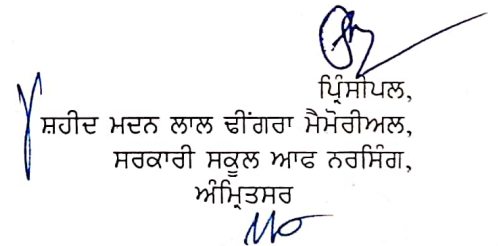 ਪ੍ਰਿੰਸੀਪਲ,
ਸ਼ਹੀਦ ਮਦਨ ਲਾਲ ਢੀਂਗਰਾ ਮੈਮੋਰੀਅਲ,
ਸਰਕਾਰੀ ਸਕੂਲ ਆਫ ਨਰਸਿੰਗ,
ਅੰਮ੍ਰਿਤਸਰ